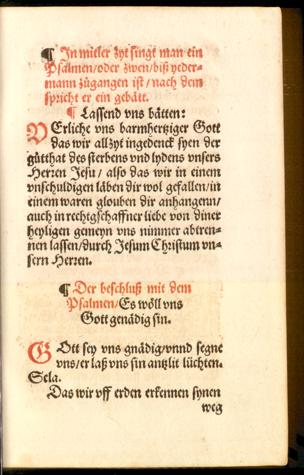 ¶ In mitler zyt singt man ein
Psalmen/oder zwen/biß yeder-
mann zůgangen ist/nach dem
spricht er ein gebätt.
¶ Lassend vns bätten:
VErliche vns barmhertziger Gott
das wir allzyt ingedenck syen der
gůtthat des sterbens vnd lydens vnsers
Herren Jesu/ also das wir in einem
vnschuldigen läben dir wol gefallen/in
einem waren glouben dir anhangenn/
auch in rechtgschaffner liebe von diner
heyligen gemeyn vns nimmer abtren-
nen lassen/durch Jesum Christum vn-
sern Herren.
¶ Der beschluß mit dem
Psalmen/Es wöll vns
Gott genädig sin.
GOtt sey vns gnädig/vnnd segne
vns/er laß vns sin antzlit lüchten.
Sela.
Das wir vff erden erkennen synen
weg